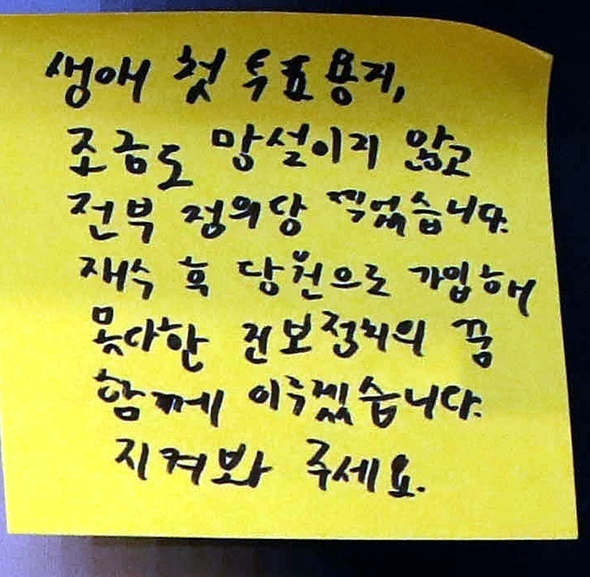 생애 첫 투표용지,
조금도 망설이지 않고
전부 정의당 찍었습니다.
재수 후 당원으로 가입해
못다한 진보정치의 꿈
함께 이루겠습니다.
지켜봐 주세요.